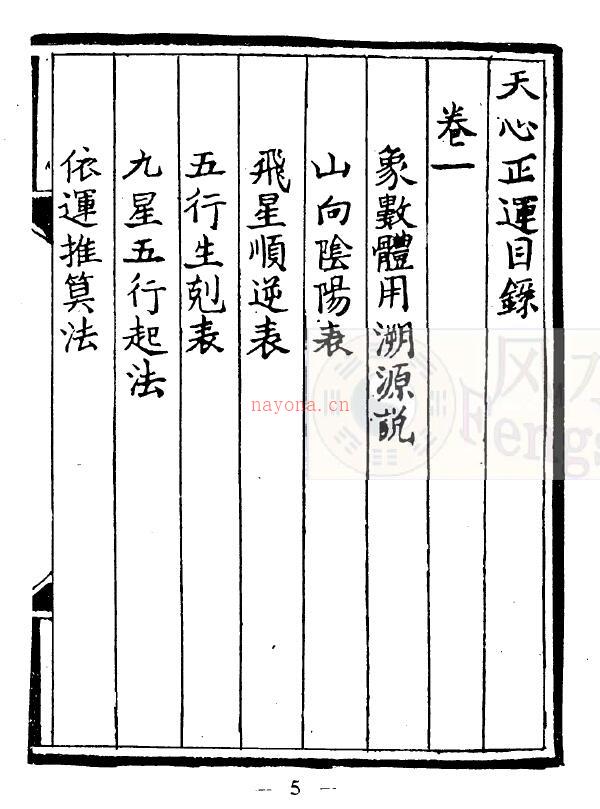 天心正運目錄
卷一
象數體用溯源說
山向陰陽表
飛星順逆表
五行生剋表
九星五行起法
依運推算法
nayona.cn
风水
Fengs
— 5 —